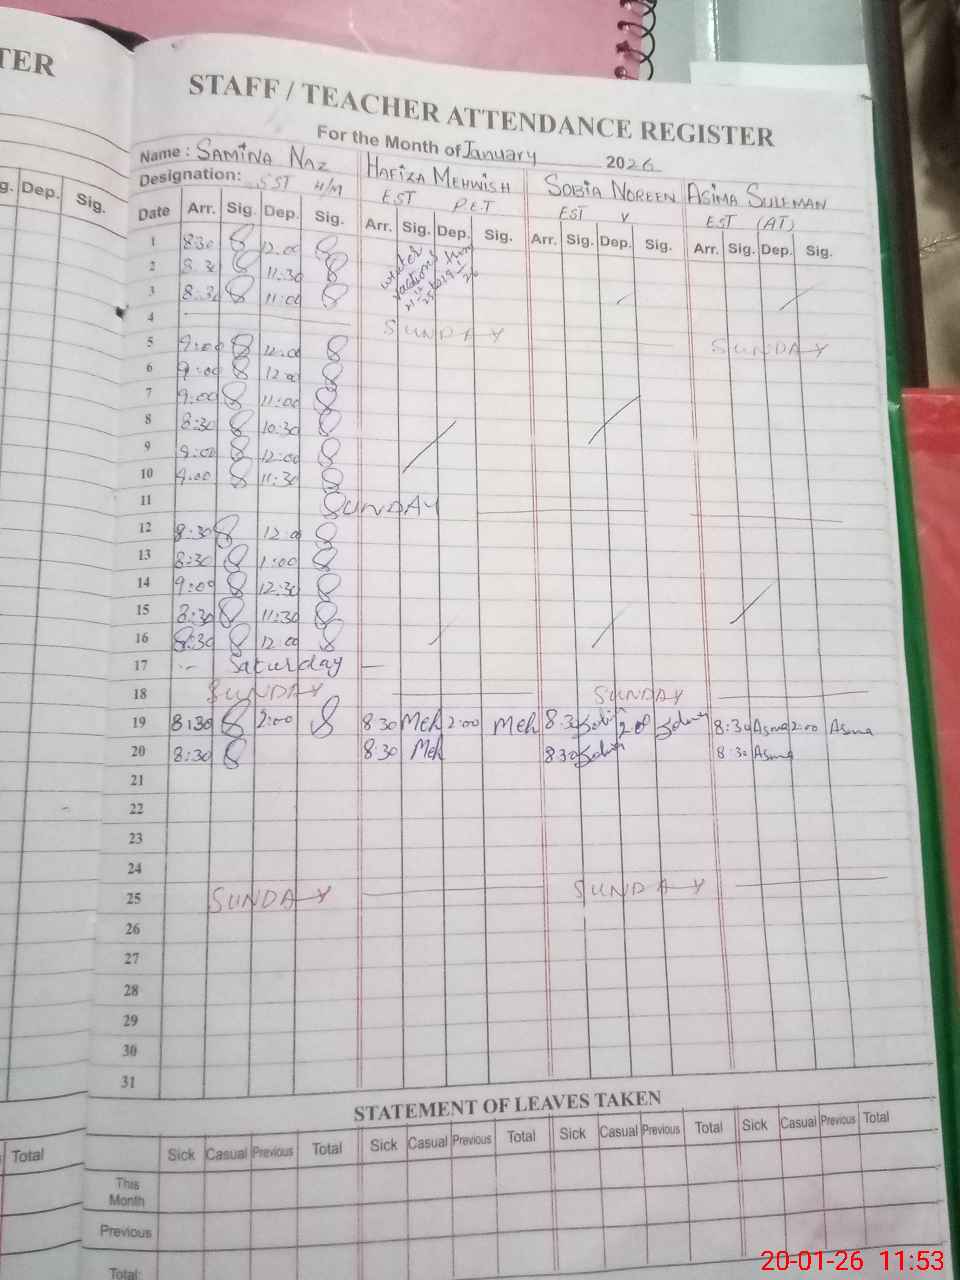 TER
STAFF / TEACHER ATTENDANCE REGISTER
For the Month of January 2026
Name : SAMINA NAZ HAFIZA MEHWISH SOBIA NOREEN ASIMA SULEMAN
Designation: SST H/M EST PET EST EST (AT)
g. Dep. Sig. Date Arr. Sig. Dep. Sig. Arr. Sig. Dep. Sig. Arr. Sig. Dep. Sig. Arr. Sig. Dep. Sig.
1 8:30 12:00 winter vactions from
2 8:30 11:30
3 8:30 11:00
4 SUNDAY
5 9:00 12:00 SUNDAY
6 9:00 12:00
7 9:00 11:00
8 8:30 10:30
9 9:00 12:00
10 9:00 11:30
11 SUNDAY
12 8:30 12:00
13 8:30 1:00
14 9:00 12:30
15 8:30 11:30
16 8:30 12:00
17 Saturday
18 SUNDAY SUNDAY
19 8:30 2:00 8 30 Meh 2:00 Meh 8:30 Sobia 2:00 Sobia 8:30 Asma 2:00 Asma
20 8:30 8:30 Meh 8:30 Sobia 8:30 Asma
21
22
23
24
25 SUNDAY SUNDAY
26
27
28
29
30
31
STATEMENT OF LEAVES TAKEN
Total Sick Casual Previous Total Sick Casual Previous Total Sick Casual Previous Total Sick Casual Previous Total
This
Month
Previous
Total:
20-01-26 11:53